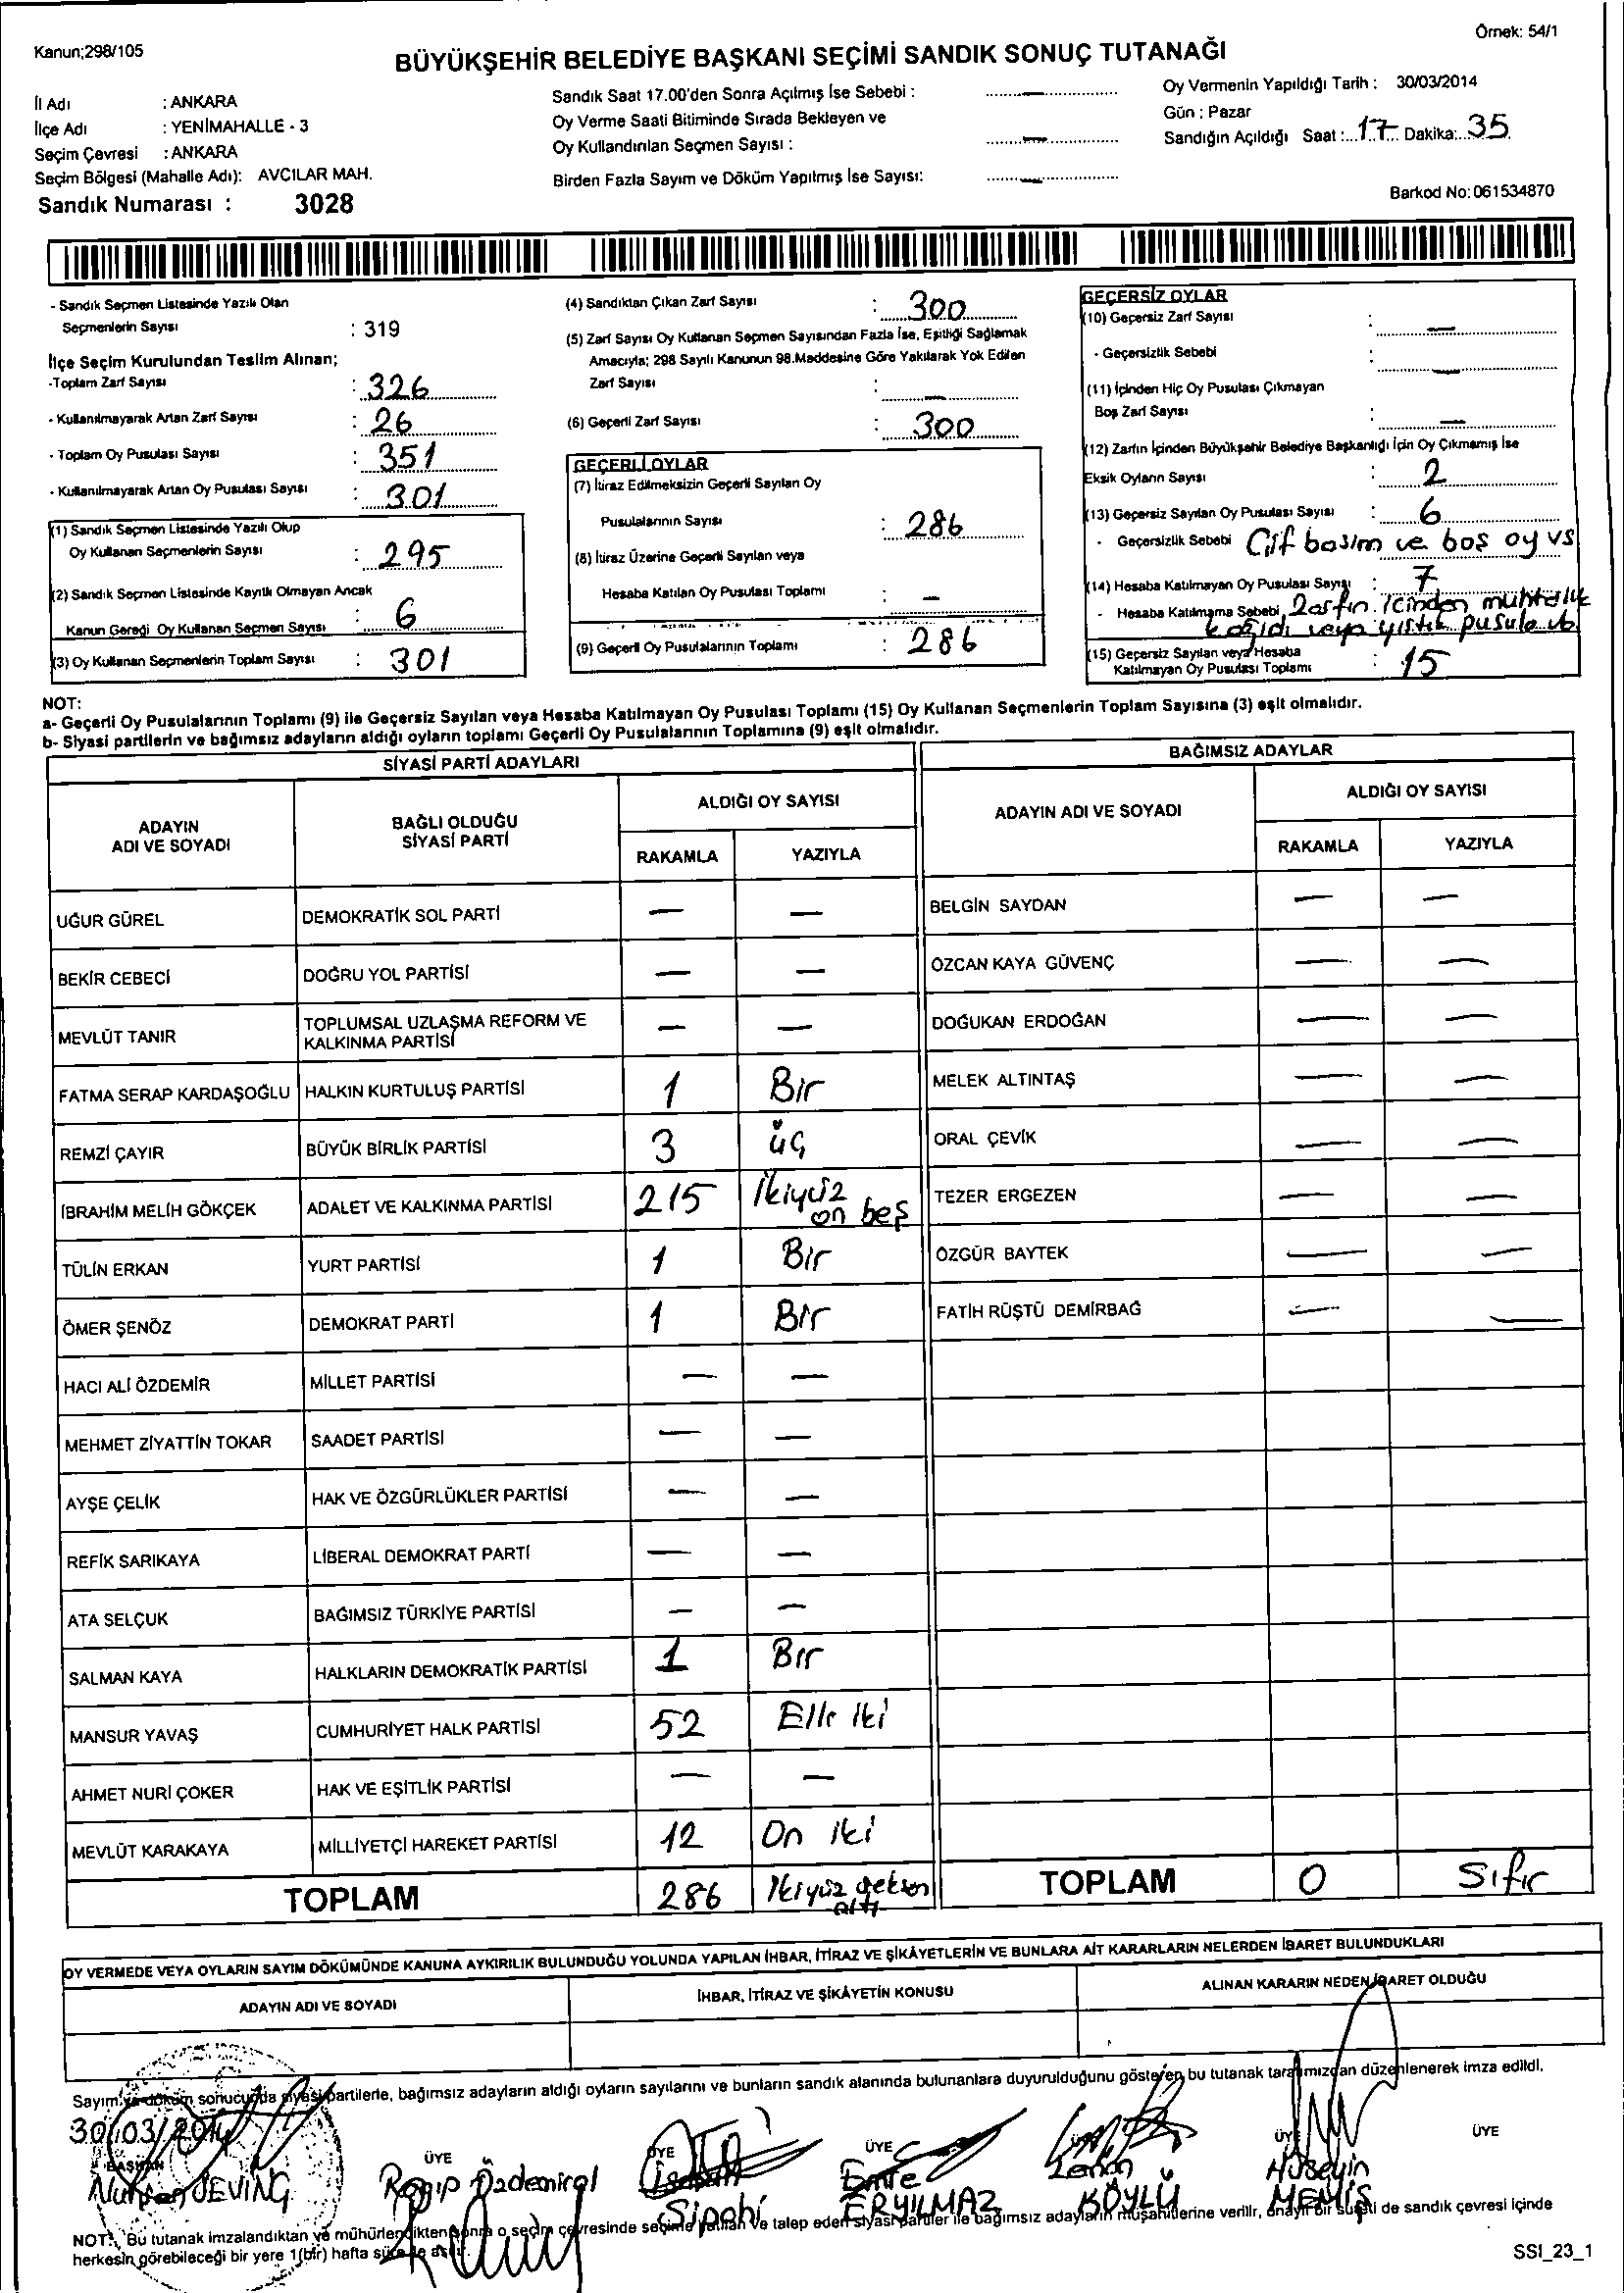 Kanun;298/105
Örnek: 54/1
BÜYÜKŞEHİR BELEDİYE BAŞKANI SEÇİMİ SANDIK SONUÇ TUTANAĞI
İl Adı : ANKARA
İlçe Adı : YENİMAHALLE - 3
Seçim Çevresi : ANKARA
Seçim Bölgesi (Mahalle Adı): AVCILAR MAH.
Sandık Numarası : 3028
Sandık Saat 17.00'den Sonra Açılmış İse Sebebi : —
Oy Verme Saati Bitiminde Sırada Bekleyen ve
Oy Kullandırılan Seçmen Sayısı : —
Birden Fazla Sayım ve Döküm Yapılmış İse Sayısı: —
Oy Vermenin Yapıldığı Tarih : 30/03/2014
Gün : Pazar
Sandığın Açıldığı Saat :...17... Dakika:..35.
Barkod No:061534870
- Sandık Seçmen Listesinde Yazılı Olan
Seçmenlerin Sayısı : 319
İlçe Seçim Kurulundan Teslim Alınan;
-Toplam Zarf Sayısı : 326
- Kullanılmayarak Artan Zarf Sayısı : 26
- Toplam Oy Pusulası Sayısı : 351
- Kullanılmayarak Artan Oy Pusulası Sayısı : 301
(1) Sandık Seçmen Listesinde Yazılı Olup
Oy Kullanan Seçmenlerin Sayısı : 295
(2) Sandık Seçmen Listesinde Kayıtlı Olmayan Ancak
Kanun Gereği Oy Kullanan Seçmen Sayısı : 6
(3) Oy Kullanan Seçmenlerin Toplam Sayısı : 301
(4) Sandıktan Çıkan Zarf Sayısı : 300
(5) Zarf Sayısı Oy Kullanan Seçmen Sayısından Fazla İse, Eşitliği Sağlamak
Amacıyla; 298 Sayılı Kanunun 98.Maddesine Göre Yakılarak Yok Edilen
Zarf Sayısı : —
(6) Geçerli Zarf Sayısı : 300
GEÇERLİ OYLAR
(7) İtiraz Edilmeksizin Geçerli Sayılan Oy
Pusulalarının Sayısı : 286
(8) İtiraz Üzerine Geçerli Sayılan veya
Hesaba Katılan Oy Pusulası Toplamı : —
(9) Geçerli Oy Pusulalarının Toplamı : 286
GEÇERSİZ OYLAR
(10) Geçersiz Zarf Sayısı : —
- Geçersizlik Sebebi : —
(11) İçinden Hiç Oy Pusulası Çıkmayan
Boş Zarf Sayısı : —
(12) Zarfın İçinden Büyükşehir Belediye Başkanlığı İçin Oy Çıkmamış İse
Eksik Oyların Sayısı : 2
(13) Geçersiz Sayılan Oy Pusulası Sayısı : 6
- Geçersizlik Sebebi Çif basım ve boş oy vs
(14) Hesaba Katılmayan Oy Pusulası Sayısı : 7
- Hesaba Katılmama Sebebi Zarfın içinden muhtarlık
kağıdı veya yırtık pusula vb
(15) Geçersiz Sayılan veya Hesaba
Katılmayan Oy Pusulası Toplamı : 15
NOT:
a- Geçerli Oy Pusulalarının Toplamı (9) ile Geçersiz Sayılan veya Hesaba Katılmayan Oy Pusulası Toplamı (15) Oy Kullanan Seçmenlerin Toplam Sayısına (3) eşit olmalıdır.
b- Siyasi partilerin ve bağımsız adayların aldığı oyların toplamı Geçerli Oy Pusulalarının Toplamına (9) eşit olmalıdır.
SİYASİ PARTİ ADAYLARI
ADAYIN ADI VE SOYADI
BAĞLI OLDUĞU SİYASİ PARTİ
ALDIĞI OY SAYISI
RAKAMLA YAZIYLA
UĞUR GÜREL DEMOKRATİK SOL PARTİ — —
BEKİR CEBECİ DOĞRU YOL PARTİSİ — —
MEVLÜT TANIR TOPLUMSAL UZLAŞMA REFORM VE KALKINMA PARTİSİ — —
FATMA SERAP KARDAŞOĞLU HALKIN KURTULUŞ PARTİSİ 1 Bir
REMZİ ÇAYIR BÜYÜK BİRLİK PARTİSİ 3 üç
İBRAHİM MELİH GÖKÇEK ADALET VE KALKINMA PARTİSİ 215 İkiyüz on beş
TÜLİN ERKAN YURT PARTİSİ 1 Bir
ÖMER ŞENÖZ DEMOKRAT PARTİ 1 Bir
HACI ALİ ÖZDEMİR MİLLET PARTİSİ — —
MEHMET ZİYATTİN TOKAR SAADET PARTİSİ — —
AYŞE ÇELİK HAK VE ÖZGÜRLÜKLER PARTİSİ — —
REFİK SARIKAYA LİBERAL DEMOKRAT PARTİ — —
ATA SELÇUK BAĞIMSIZ TÜRKİYE PARTİSİ — —
SALMAN KAYA HALKLARIN DEMOKRATİK PARTİSİ 1 Bir
MANSUR YAVAŞ CUMHURİYET HALK PARTİSİ 52 Elli iki
AHMET NURİ ÇOKER HAK VE EŞİTLİK PARTİSİ — —
MEVLÜT KARAKAYA MİLLİYETÇİ HAREKET PARTİSİ 12 On iki
TOPLAM 286 İkiyüz seksen altı
BAĞIMSIZ ADAYLAR
ADAYIN ADI VE SOYADI
ALDIĞI OY SAYISI
RAKAMLA YAZIYLA
BELGİN SAYDAN — —
ÖZCAN KAYA GÜVENÇ — —
DOĞUKAN ERDOĞAN — —
MELEK ALTINTAŞ — —
ORAL ÇEVİK — —
TEZER ERGEZEN — —
ÖZGÜR BAYTEK — —
FATİH RÜŞTÜ DEMİRBAĞ — —
TOPLAM 0 Sıfır
OY VERMEDE VEYA OYLARIN SAYIM DÖKÜMÜNDE KANUNA AYKIRILIK BULUNDUĞU YOLUNDA YAPILAN İHBAR, İTİRAZ VE ŞİKÂYETLERİN VE BUNLARA AİT KARARLARIN NELERDEN İBARET BULUNDUKLARI
ADAYIN ADI VE SOYADI
İHBAR, İTİRAZ VE ŞİKÂYETİN KONUSU
ALINAN KARARIN NEDEN İBARET OLDUĞU
Sayım ve döküm sonucunda siyasi partilerle, bağımsız adayların aldığı oyların sayılarını ve bunların sandık alanında bulunanlara duyurulduğunu gösteren bu tutanak tarafımızdan düzenlenerek imza edildi.
30/03/2014
BAŞKAN ÜYE ÜYE ÜYE ÜYE ÜYE ÜYE
SEVİNÇ
Ragıp Özdemiral
Sipahi
Emre ERYILMAZ
KÖYLÜ
Hüseyin MEMİŞ
NOT: Bu tutanak imzalandıktan ve mühürlendikten sonra o seçim çevresinde seçime katılan ve talep eden siyasi partiler ile bağımsız adayların müşahitlerine verilir, onaylı bir sureti de sandık çevresi içinde
herkesin görebileceği bir yere 1(bir) hafta süre ile asılır.
SSI_23_1